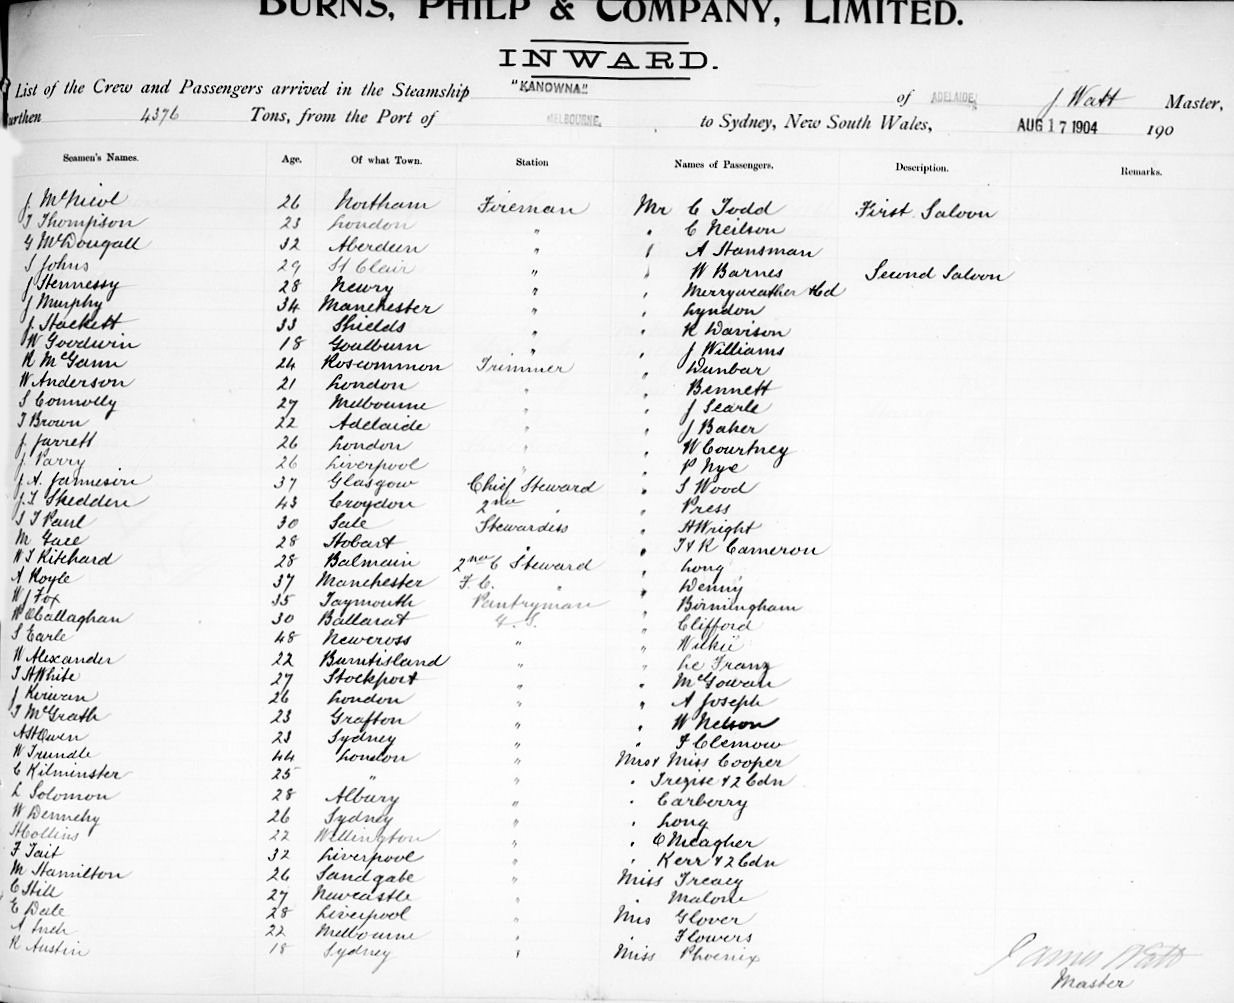 BURNS, PHILP & COMPANY, LIMITED.
INWARD.
List of the Crew and Passengers arrived in the Steamship "KANOWNA" of ADELAIDE, J Watt Master,
urthen 4376 Tons, from the Port of MELBOURNE. to Sydney, New South Wales, AUG 17 1904 190
Seamen's Names. Age. Of what Town. Station Names of Passengers. Description. Remarks.
J McNicol 26 Northam Fireman Mr C Todd First Saloon
T Thompson 23 London " " C Neilson
G McDougall 32 Aberdeen " " A Hansman
S Johns 29 St Clair " " W Barnes Second Saloon
J Hennessy 28 Newry " " Merryweather & Cd
J Murphy 34 Manchester " " Lyndon
J Hackett 33 Shields " " R Davison
W Goodwin 18 Goulburn " " J Williams
R McGann 24 Roscommon Trimmer " Dunbar
W Anderson 21 London " " Bennett
S Connolly 27 Melbourne " " J Searle
T Brown 22 Adelaide " " J Baker
J Jarrett 26 London " " W Courtney
J Parry 26 Liverpool " " P Nye
J. A. Jamieson 37 Glasgow Chief Steward " S Wood
J. T. Shedden 43 Croydon 2nd " " Press
S T Paul 30 Sale Stewardess " H Wright
M Gace 28 Hobart " " T & R Cameron
W T Ritchard 28 Balmain 2nd C Steward " Long
A Royle 37 Manchester F. C. " " Denny
W J Fox 35 Taymouth Pantryman " Birmingham
P O'Callaghan 30 Ballarat G. S. " Clifford
S Earle 48 Newcross " " Wilkie
W Alexander 22 Burntisland " " Le Franz
T H White 27 Stockport " " McGowan
J Kirwan 26 London " " A Joseph
T McGrath 23 Grafton " " W Nelson
A H Owen 23 Sydney " " F Clemow
W Trundle 44 London " Mrs & Miss Cooper
C Kilminster 25 " " " Trezise & 2 Cdn
L Solomon 28 Albury " " Carberry
W Dennehy 26 Sydney " " Long
H Collins 22 Wellington " " O'Meagher
F Tait 32 Liverpool " " Kerr & 2 Cdn
M Hamilton 26 Sandgate " Miss Treacy
C Hill 27 Newcastle " " Malone
E Dale 28 Liverpool " Mrs Glover
A Inch 22 Melbourne " " Flowers
R Austin 18 Sydney " Miss Phoenix
James Watt
Master